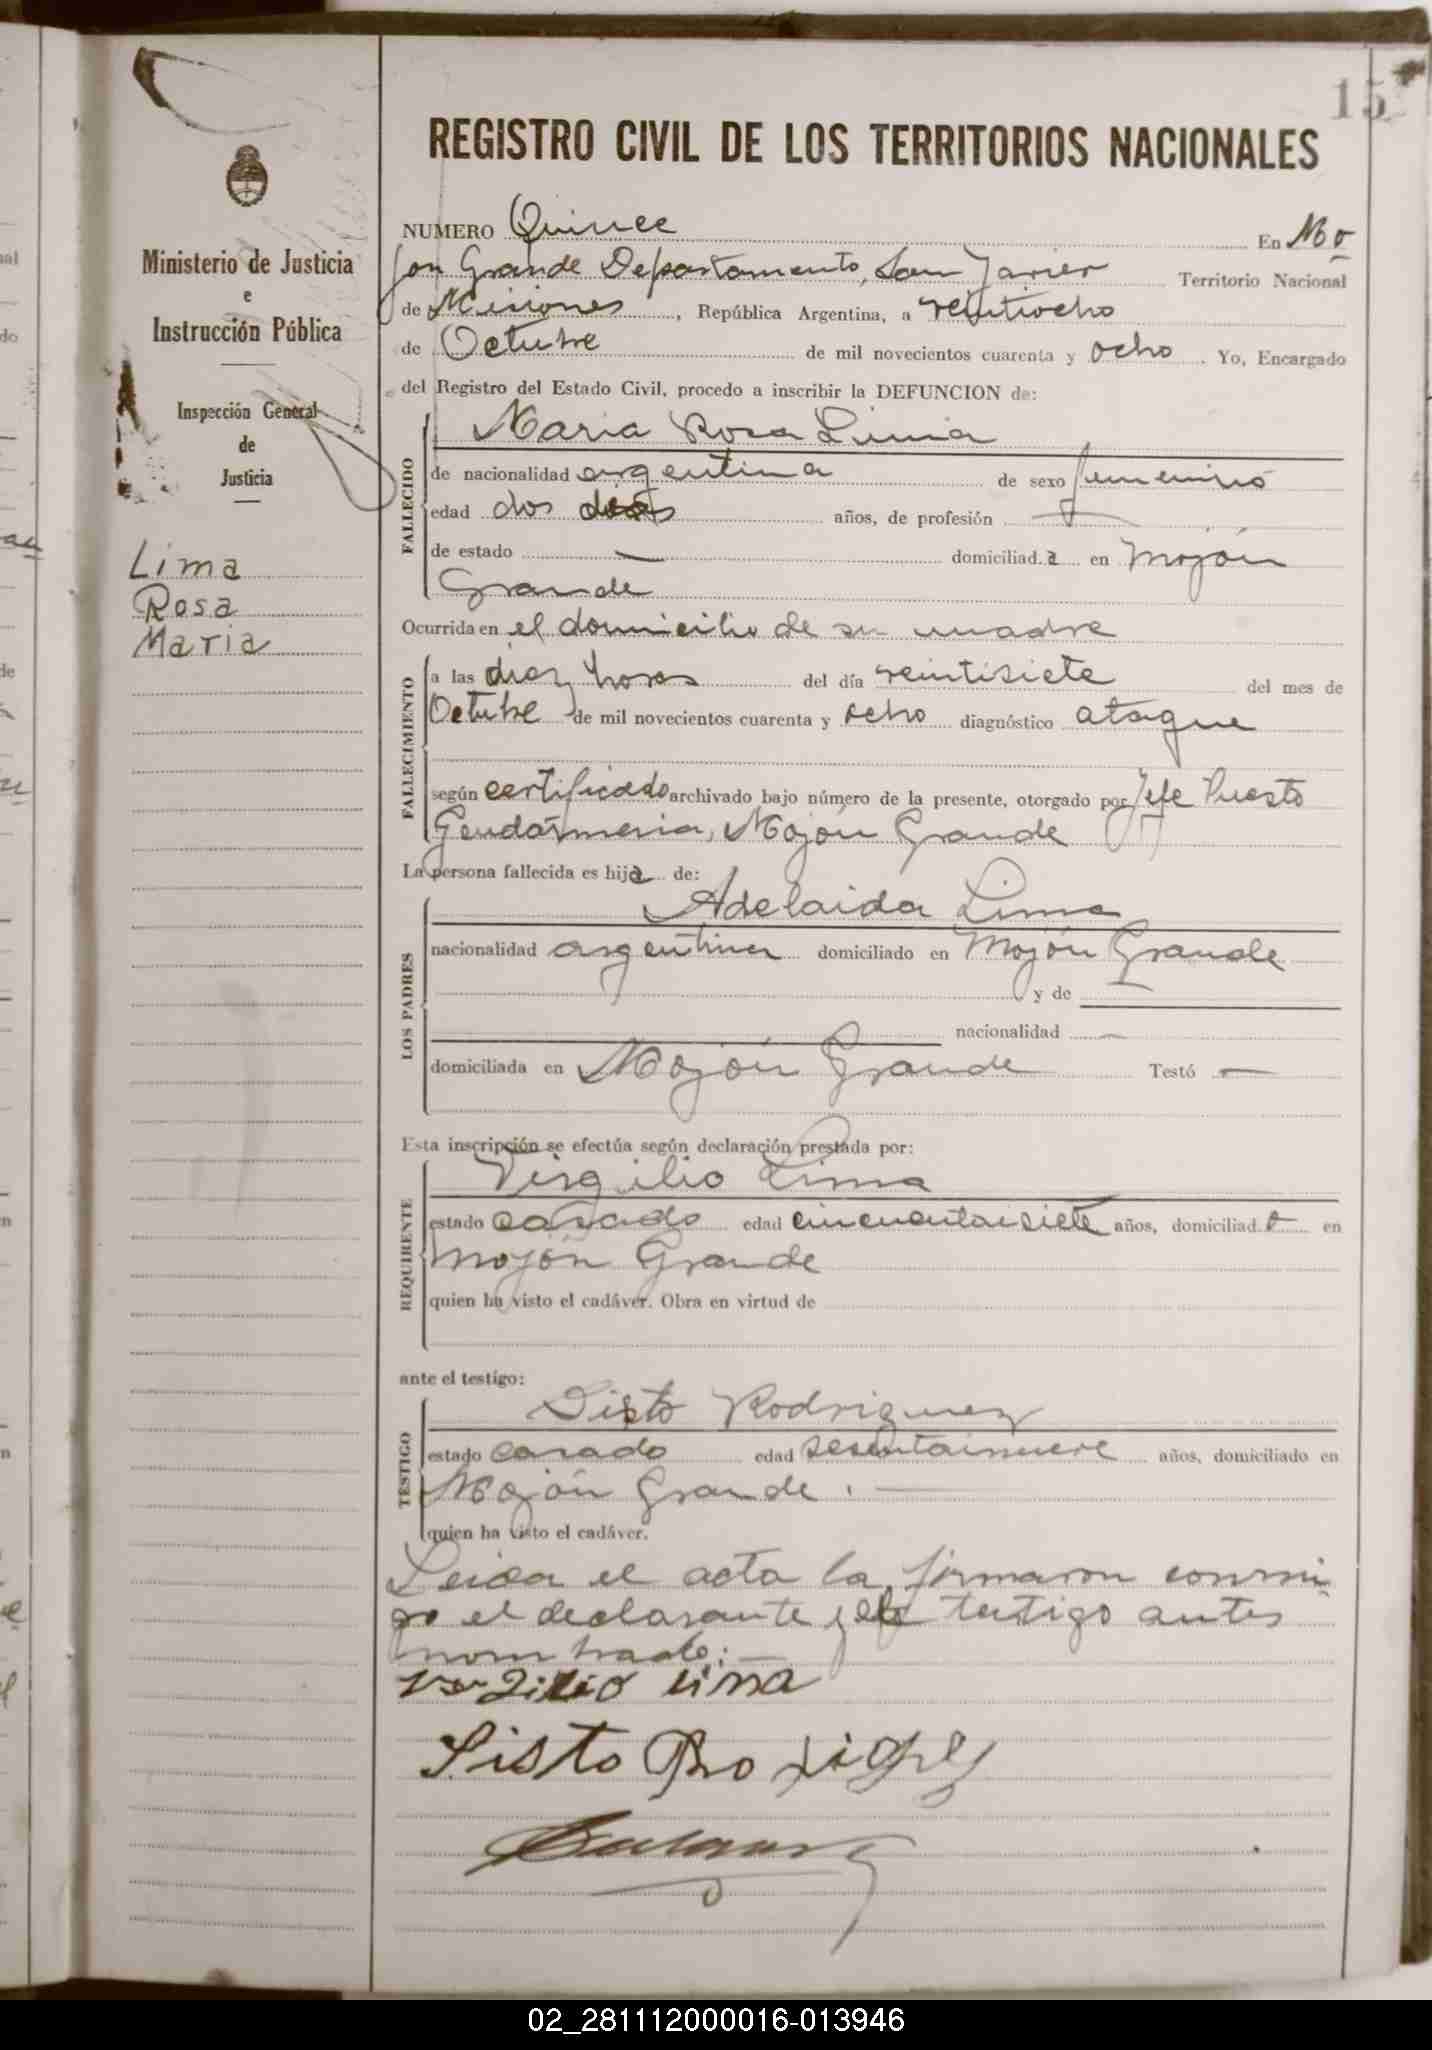 15
REGISTRO CIVIL DE LOS TERRITORIOS NACIONALES
Ministerio de Justicia
e
Instrucción Pública
Inspección General
de
Justicia
Lima
Rosa
Maria
NUMERO Quince En Mo
jon Grande Departamento, San Javier Territorio Nacional
de Misiones, República Argentina, a veintiocho
de Octubre de mil novecientos cuarenta y ocho. Yo, Encargado
del Registro del Estado Civil, procedo a inscribir la DEFUNCION de:
FALLECIDO
Maria Rosa Lima
de nacionalidad argentina de sexo femenino
edad dos dias años, de profesión —
de estado — domiciliada en Mojón
Grande
Ocurrida en el domicilio de su madre
FALLECIMIENTO
a las diez horas del día veintisiete del mes de
Octubre de mil novecientos cuarenta y ocho diagnóstico ataque
según certificado archivado bajo número de la presente, otorgado por Jefe Puesto
Gendarmeria, Mojón Grande
La persona fallecida es hija de:
LOS PADRES
Adelaida Lima
nacionalidad argentina domiciliado en Mojón Grande
y de
nacionalidad —
domiciliada en Mojón Grande Testó —
Esta inscripción se efectúa según declaración prestada por:
REQUIRENTE
Virgilio Lima
estado casado edad cincuentaisiete años, domiciliado en
Mojón Grande
quien ha visto el cadáver. Obra en virtud de
ante el testigo:
TESTIGO
Sisto Rodriguez
estado casado edad sesentainueve años, domiciliado en
Mojón Grande. —
quien ha visto el cadáver.
Leida el acta la firmaron conmi-
go el declarante y el testigo antes
nombrado: —
Virgilio Lima
Sisto Rodriguez
02_281112000016-013946